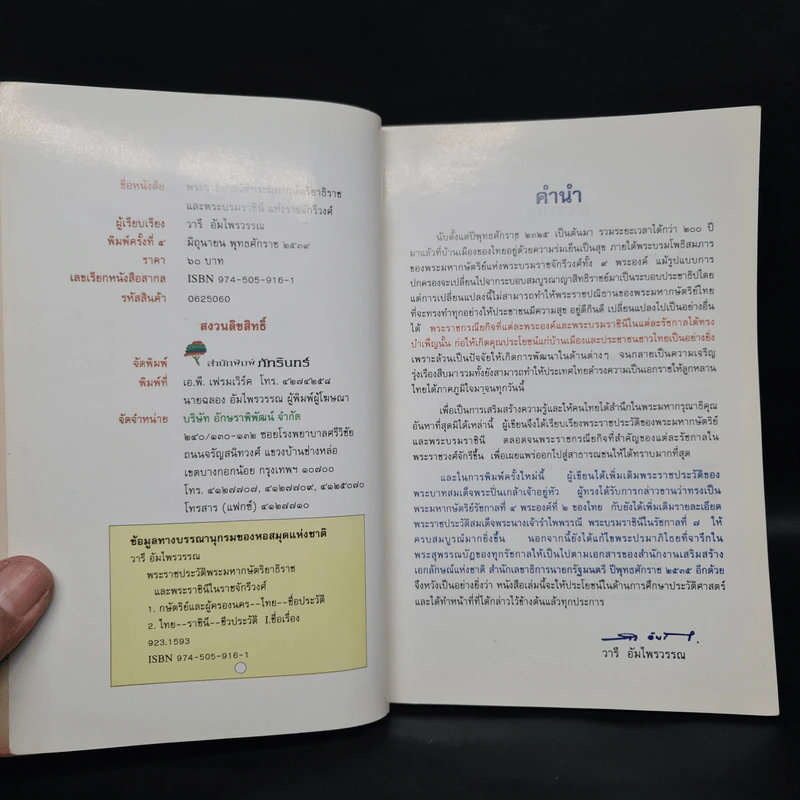 ชื่อหนังสือ พระราชประวัติพระมหากษัตริยาธิราช
และพระบรมราชินี แห่งราชจักรีวงศ์
ผู้เรียบเรียง วารี อัมไพรวรรณ
พิมพ์ครั้งที่ ๔ มิถุนายน พุทธศักราช ๒๕๓๙
ราคา ๖๐ บาท
เลขเรียกหนังสือสากล ISBN 974-505-916-1
รหัสสินค้า 0625060
สงวนลิขสิทธิ์
จัดพิมพ์ สำนักพิมพ์ ภัทรินทร์
พิมพ์ที่ เอ.พี. เฟรมเวิร์ค โทร. ๔๒๗๔๒๕๘
นายฉลอง อัมไพรวรรณ ผู้พิมพ์ผู้โฆษณา
จัดจำหน่าย บริษัท อักษราพิพัฒน์ จำกัด
๒๔๐/๑๓๐-๑๓๒ ซอยโรงพยาบาลศรีวิชัย
ถนนจรัญสนิทวงศ์ แขวงบ้านช่างหล่อ
เขตบางกอกน้อย กรุงเทพฯ ๑๐๗๐๐
โทร. ๔๑๒๗๗๐๗, ๔๑๒๗๗๐๙, ๔๑๒๕๐๗๐
โทรสาร (แฟกซ์) ๔๑๒๗๗๑๐
ข้อมูลทางบรรณานุกรมของหอสมุดแห่งชาติ
วารี อัมไพรวรรณ
พระราชประวัติพระมหากษัตริยาธิราช
และพระราชินีในราชจักรีวงศ์
1. กษัตริย์และผู้ครองนคร--ไทย--ชื่อประวัติ
2. ไทย--ราชินี--ชีวประวัติ I.ชื่อเรื่อง
923.1593
ISBN 974-505-916-1
คำนำ
นับตั้งแต่ปีพุทธศักราช ๒๓๒๕ เป็นต้นมา รวมระยะเวลาได้กว่า ๒๐๐ ปี
มาแล้วที่บ้านเมืองของไทยอยู่ด้วยความร่มเย็นเป็นสุข ภายใต้พระบรมโพธิสมภาร
ของพระมหากษัตริย์แห่งพระบรมราชจักรีวงศ์ทั้ง ๙ พระองค์ แม้รูปแบบการ
ปกครองจะเปลี่ยนไปจากระบอบสมบูรณาญาสิทธิราชย์มาเป็นระบอบประชาธิปไตย
แต่การเปลี่ยนแปลงนี้ไม่สามารถทำให้พระราชปณิธานของพระมหากษัตริย์ไทย
ที่จะทรงทำทุกอย่างให้ประชาชนมีความสุข อยู่ดีกินดี เปลี่ยนแปลงไปเป็นอย่างอื่น
ได้ พระราชกรณียกิจที่แต่ละพระองค์และพระบรมราชินีในแต่ละรัชกาลได้ทรง
บำเพ็ญนั้น ก่อให้เกิดคุณประโยชน์แก่บ้านเมืองและประชาชนชาวไทยเป็นอย่างยิ่ง
เพราะล้วนเป็นปัจจัยให้เกิดการพัฒนาในด้านต่างๆ จนกลายเป็นความเจริญ
รุ่งเรืองสืบมา รวมทั้งยังสามารถทำให้ประเทศไทยดำรงความเป็นเอกราชให้ลูกหลาน
ไทยได้ภาคภูมิใจมาจนทุกวันนี้
เพื่อเป็นการเสริมสร้างความรู้และให้คนไทยได้สำนึกในพระมหากรุณาธิคุณ
อันหาที่สุดมิได้เหล่านี้ ผู้เขียนจึงได้เรียบเรียงพระราชประวัติของพระมหากษัตริย์
และพระบรมราชินี ตลอดจนพระราชกรณียกิจที่สำคัญของแต่ละรัชกาลใน
พระราชวงศ์จักรีขึ้น เพื่อเผยแพร่ออกไปสู่สาธารณชนให้ได้ทราบมากที่สุด
และในการพิมพ์ครั้งใหม่นี้ ผู้เขียนได้เพิ่มเติมพระราชประวัติของ
พระบาทสมเด็จพระปิ่นเกล้าเจ้าอยู่หัว ผู้ทรงได้รับการกล่าวขานว่าทรงเป็น
พระมหากษัตริย์รัชกาลที่ ๔ พระองค์ที่ ๒ ของไทย กับยังได้เพิ่มเติมรายละเอียด
พระราชประวัติสมเด็จพระนางเจ้ารำไพพรรณี พระบรมราชินีในรัชกาลที่ ๗ ให้
ครบสมบูรณ์มากยิ่งขึ้น นอกจากนี้ยังได้แก้ไขพระปรมาภิไธยที่จารึกใน
พระสุพรรณบัฏของทุกรัชกาลให้เป็นไปตามเอกสารของสำนักงานเสริมสร้าง
เอกลักษณ์แห่งชาติ สำนักเลขาธิการนายกรัฐมนตรี ปีพุทธศักราช ๒๕๓๕ อีกด้วย
จึงหวังเป็นอย่างยิ่งว่า หนังสือเล่มนี้จะให้ประโยชน์ในด้านการศึกษาประวัติศาสตร์
และได้ทำหน้าที่ที่ได้กล่าวไว้ข้างต้นแล้วทุกประการ
วารี อัมไพรวรรณ